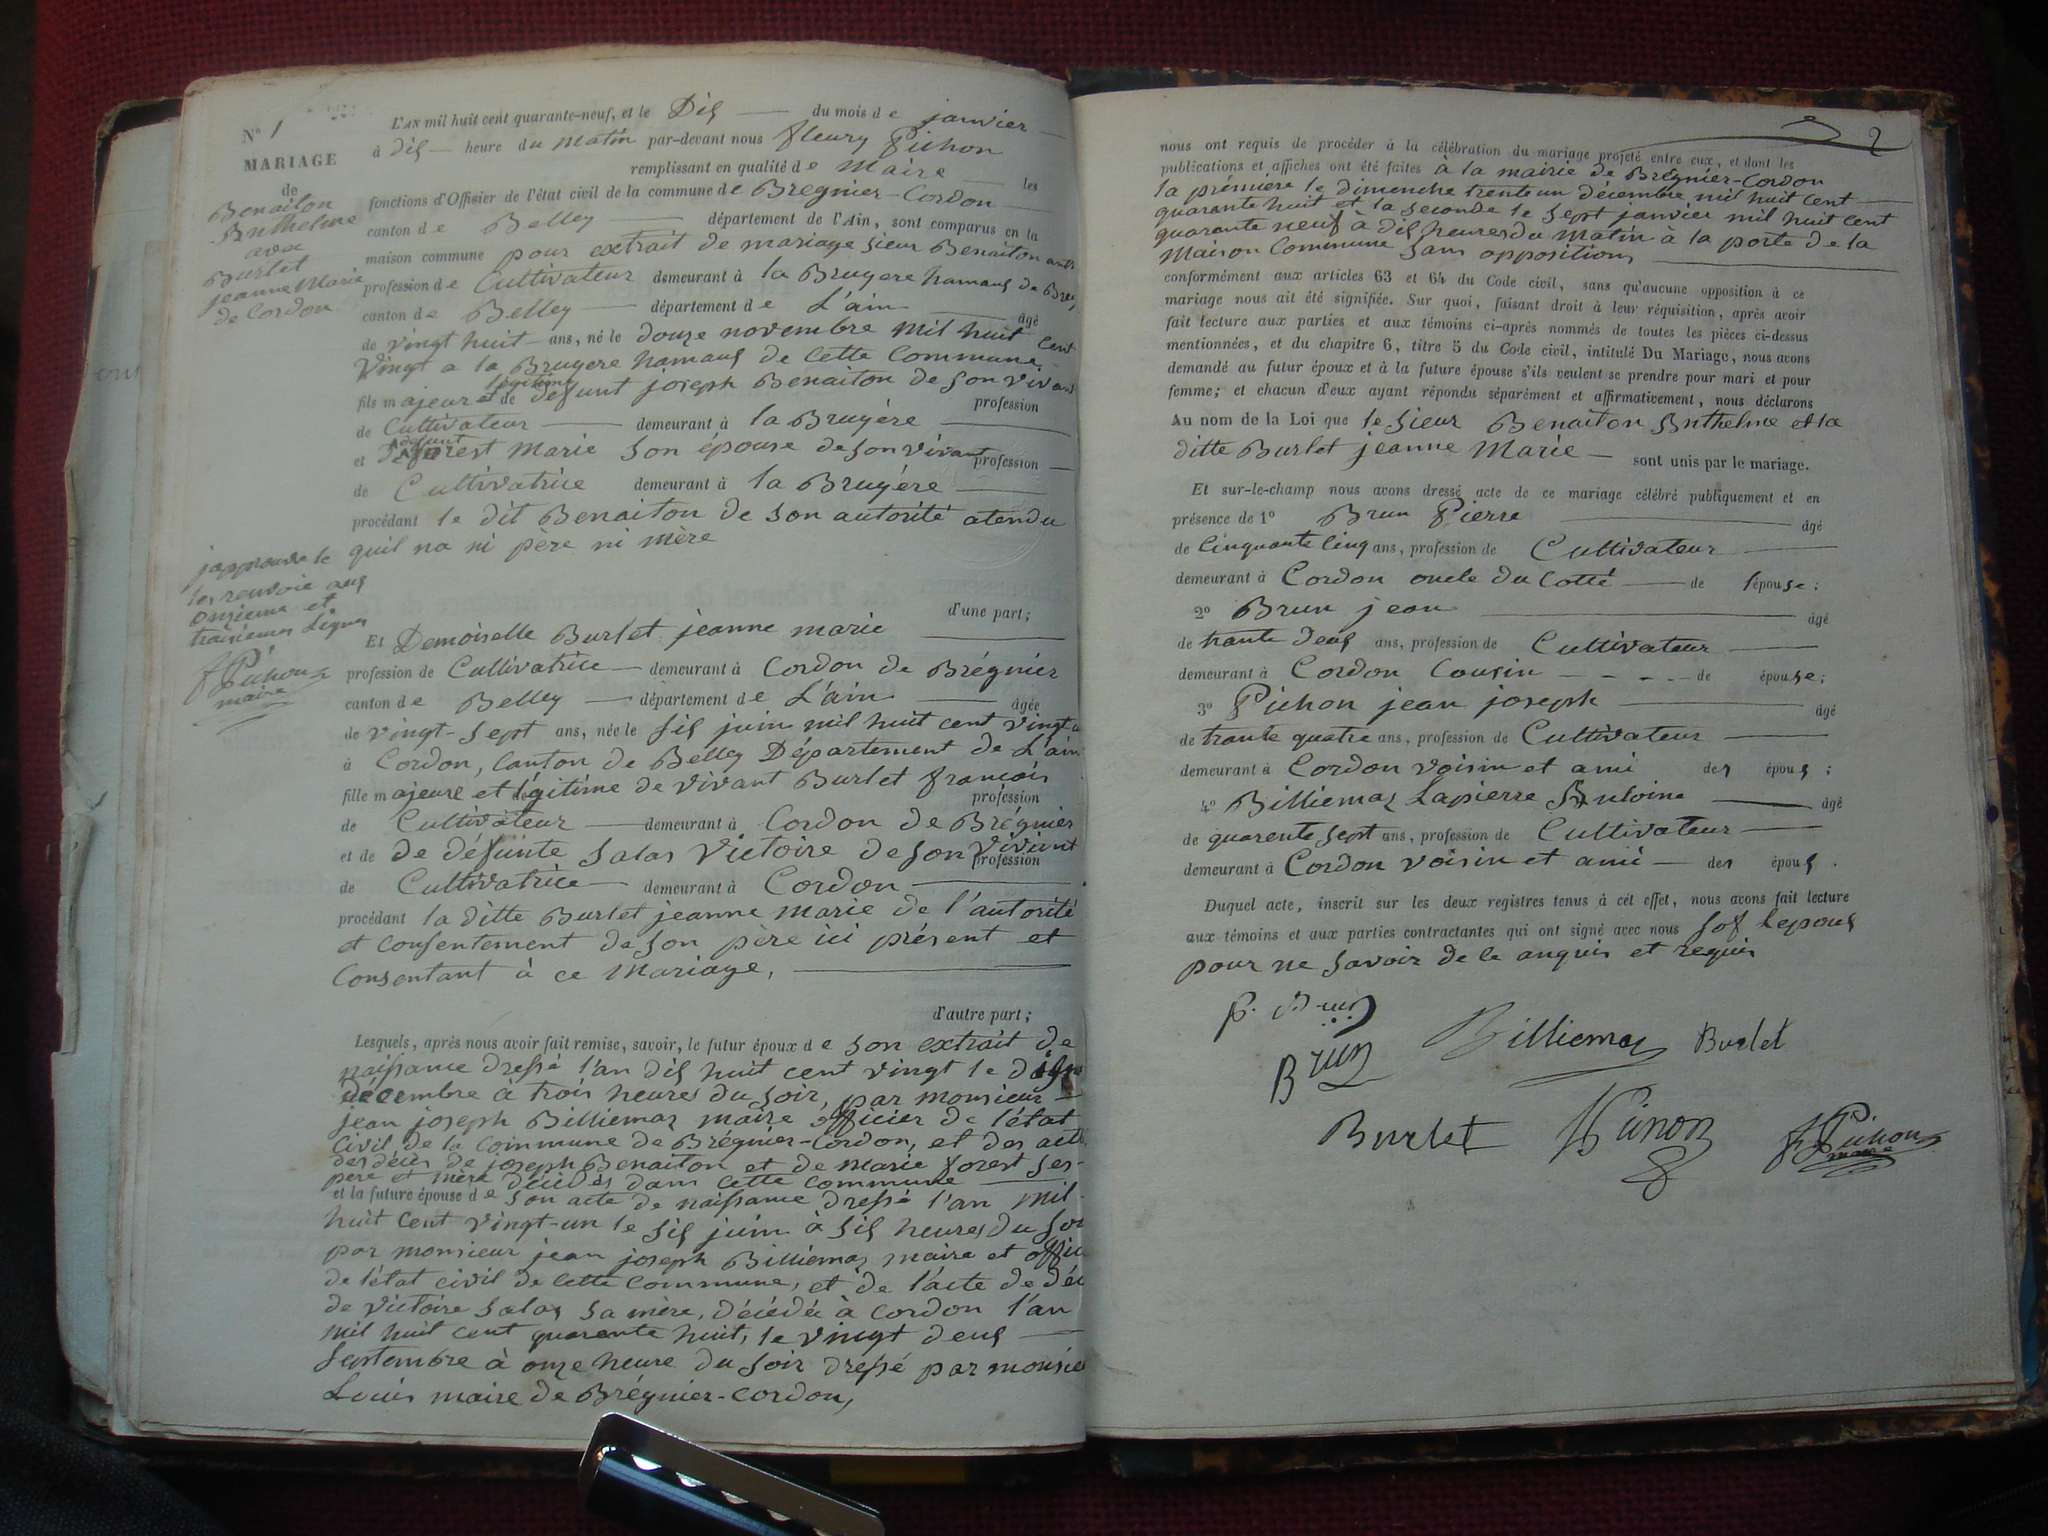 N° 1
MARIAGE
de
Benaiton
Anthelme
avec
Burlet
jeanne Marie
de Cordon
L'AN mil huit cent quarante-neuf, et le Dis du mois de janvier
à dis heure du matin par-devant nous fleury Pichon
remplissant en qualité de Maire les
fonctions d'Offisier de l'état civil de la commune de Bregnier-Cordon
canton de Belley département de l'Ain, sont comparus en la
maison commune pour extrait de mariage sieur Benaiton
profession de Cultivateur demeurant à la Bruyere hamaus de
canton de Belley département de L'ain âgé
de vingt huit ans, né le douze novembre mil huit cent
vingt a la Bruyere hamaus de Cette Commune
fils majeur et légitime de défunt joseph Benaiton de son vivant
profession
de Cultivateur demeurant à la Bruyère
et forest Marie son épouse de son vivant profession
de Cultivatrice demeurant à la Bruyère
procédant le dit Benaiton de son autorité atendu
quil na ni pere ni mère
japprouve le
les renvoie aus
onzieme et
traisiemes Lignes
f Pichon
maire
d'une part;
Et Demoiselle Burlet jeanne marie
profession de Cultivatrice demeurant à Cordon de Brégnier
canton de Belley département de L'ain âgée
de vingt-sept ans, née le sis juin mil huit cent vingt-u
à Cordon, Canton de Belley Département de L'ain
fille majeure et légitime de vivant Burlet francois
profession
de Cultivateur demeurant à Cordon de Brégnier
et de de défunte Salas Victoire de son vivant
profession
de Cultivatrice demeurant à Cordon
procédant la ditte Burlet jeanne Marie de l'autorité
et consentement de son père ici présent et
Consentant à ce Mariage,
d'autre part;
Lesquels, après nous avoir fait remise, savoir, le futur époux de son extrait de
naissance dressé l'an dis huit cent vingt le
décembre à trois heures du soir, par monsieur
jean joseph Billiemas maire officier de l'état
Civil de la Commune de Brégnier-Cordon, et des acte
des décès de joseph Benaiton et de Marie forest ses
pere et mère décédés dans cette commune
et la future épouse de son acte de naissance dressé l'an mil
huit cent vingt-un le sis juin à sis heures du soi
par monsieur jean joseph Billiemas maire et offic
de l'état civil de Cette Commune, et de l'acte de déc
de Victoire Salas sa mère, décédée à Cordon l'an
mil huit cent quarente huit, le vingt deus
septembre à onze heure du soir dressé par monsieu
Louis maire de Brégnier-Cordon,
2
nous ont requis de procéder à la célébration du mariage projeté entre eux, et dont les
publications et affiches ont été faites à la mairie de Brégnier-Cordon
la prémière le dimenche trente un décembre mil huit cent
quarante huit et la seconde le sept janvier mil huit cent
quarante neuf à dis heures du matin à la porte de la
Maison Commune sans oppositions
conformément aux articles 63 et 64 du Code civil, sans qu'aucune opposition à ce
mariage nous ait été signifiée. Sur quoi, faisant droit à leur réquisition, après avoir
fait lecture aux parties et aux témoins ci-après nommés de toutes les pièces ci-dessus
mentionnées, et du chapitre 6, titre 5 du Code civil, intitulé Du Mariage, nous avons
demandé au futur époux et à la future épouse s'ils veulent se prendre pour mari et pour
femme; et chacun d'eux ayant répondu séparément et affirmativement, nous déclarons
Au nom de la Loi que le sieur Benaiton Anthelme et la
ditte Burlet jeanne Marie sont unis par le mariage.
Et sur-le-champ nous avons dressé acte de ce mariage célébré publiquement et en
présence de 1° Brun Pierre âgé
de Cinquante cinq ans, profession de Cultivateur
demeurant à Cordon oncle du Cotté de l'épouse:
2° Brun jean âgé
de trante deus ans, profession de Cultivateur
demeurant à Cordon Cousin de épouse:
3° Pichon jean joseph âgé
de trante quatre ans, profession de Cultivateur
demeurant à Cordon voisin et ami des épous;
4° Billiemas Lapierre Antoine âgé
de quarente sept ans, profession de Cultivateur
demeurant à Cordon voisin et ami des épous.
Duquel acte, inscrit sur les deux registres tenus à cet effet, nous avons fait lecture
aux témoins et aux parties contractantes qui ont signé avec nous sof lepous
pour ne savoir de le anquis et requis
P. Brun
Billiemas Burlet
Brun
Burlet Pichon f Pichon
maire